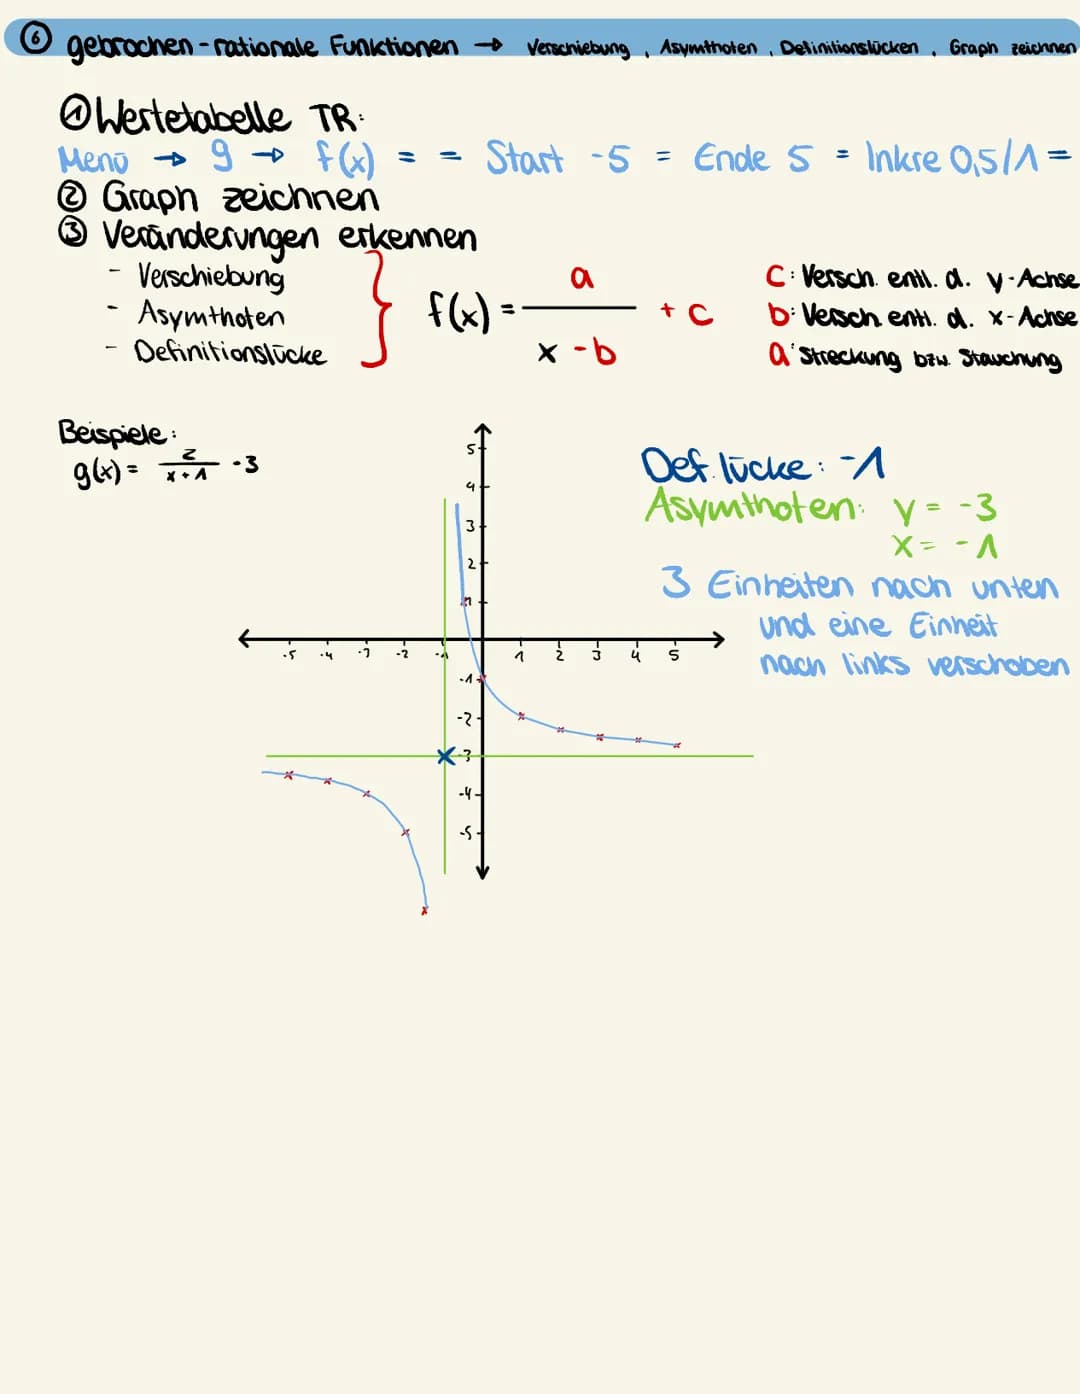 ⑥ gebrochen-rationale Funktionen → Verschiebung, Asymthoten, Definitionslücken, Graph zeichnen
① Wertetabelle TR:
Menü → 9 → f(x) = = Start -5 = Ende 5 = Inkre 0,5/1 =
② Graph zeichnen
③ Veränderungen erkennen
- Verschiebung
- Asymthoten
- Definitionslücke
f(x) = a / (x - b) + c
c: Versch. entl. d. y-Achse
b: Versch. entl. d. x-Achse
a: Streckung bzw. Stauchung
Beispiele:
g(x) = 2 / (x + 1) - 3
Def. lücke: -1
Asymthoten: y = -3
x = -1
3 Einheiten nach unten
und eine Einheit
nach links verschoben
5
4
3
2
1
-5 -4 -3 -2 -1 1 2 3 4 5
-1
-2
-3
-4
-5